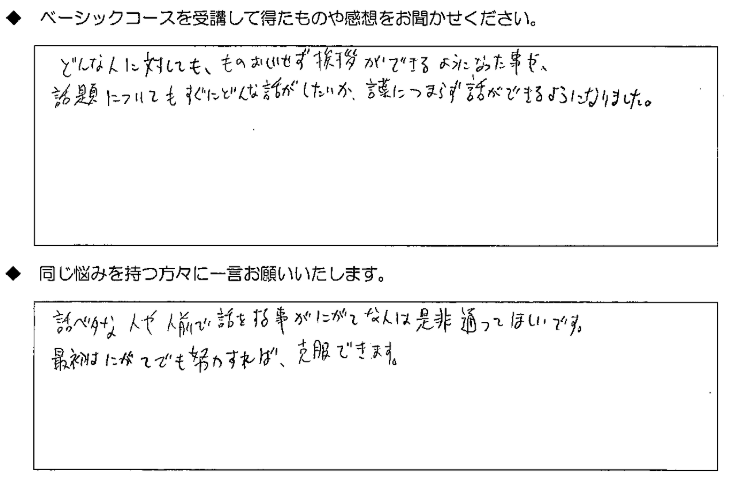 ◆ ベーシックコースを受講して得たものや感想をお聞かせください。
どんな人に対しても、ものおじせず挨拶ができるようになった事や、
話題についてもすぐにどんな話がしたいか、言葉につまらず話ができるようになりました。
◆ 同じ悩みを持つ方々に一言お願いいたします。
話ベタな人や人前で話をする事がにがてな人は是非通ってほしいです。
最初はにがてでも努力すれば、克服できます。